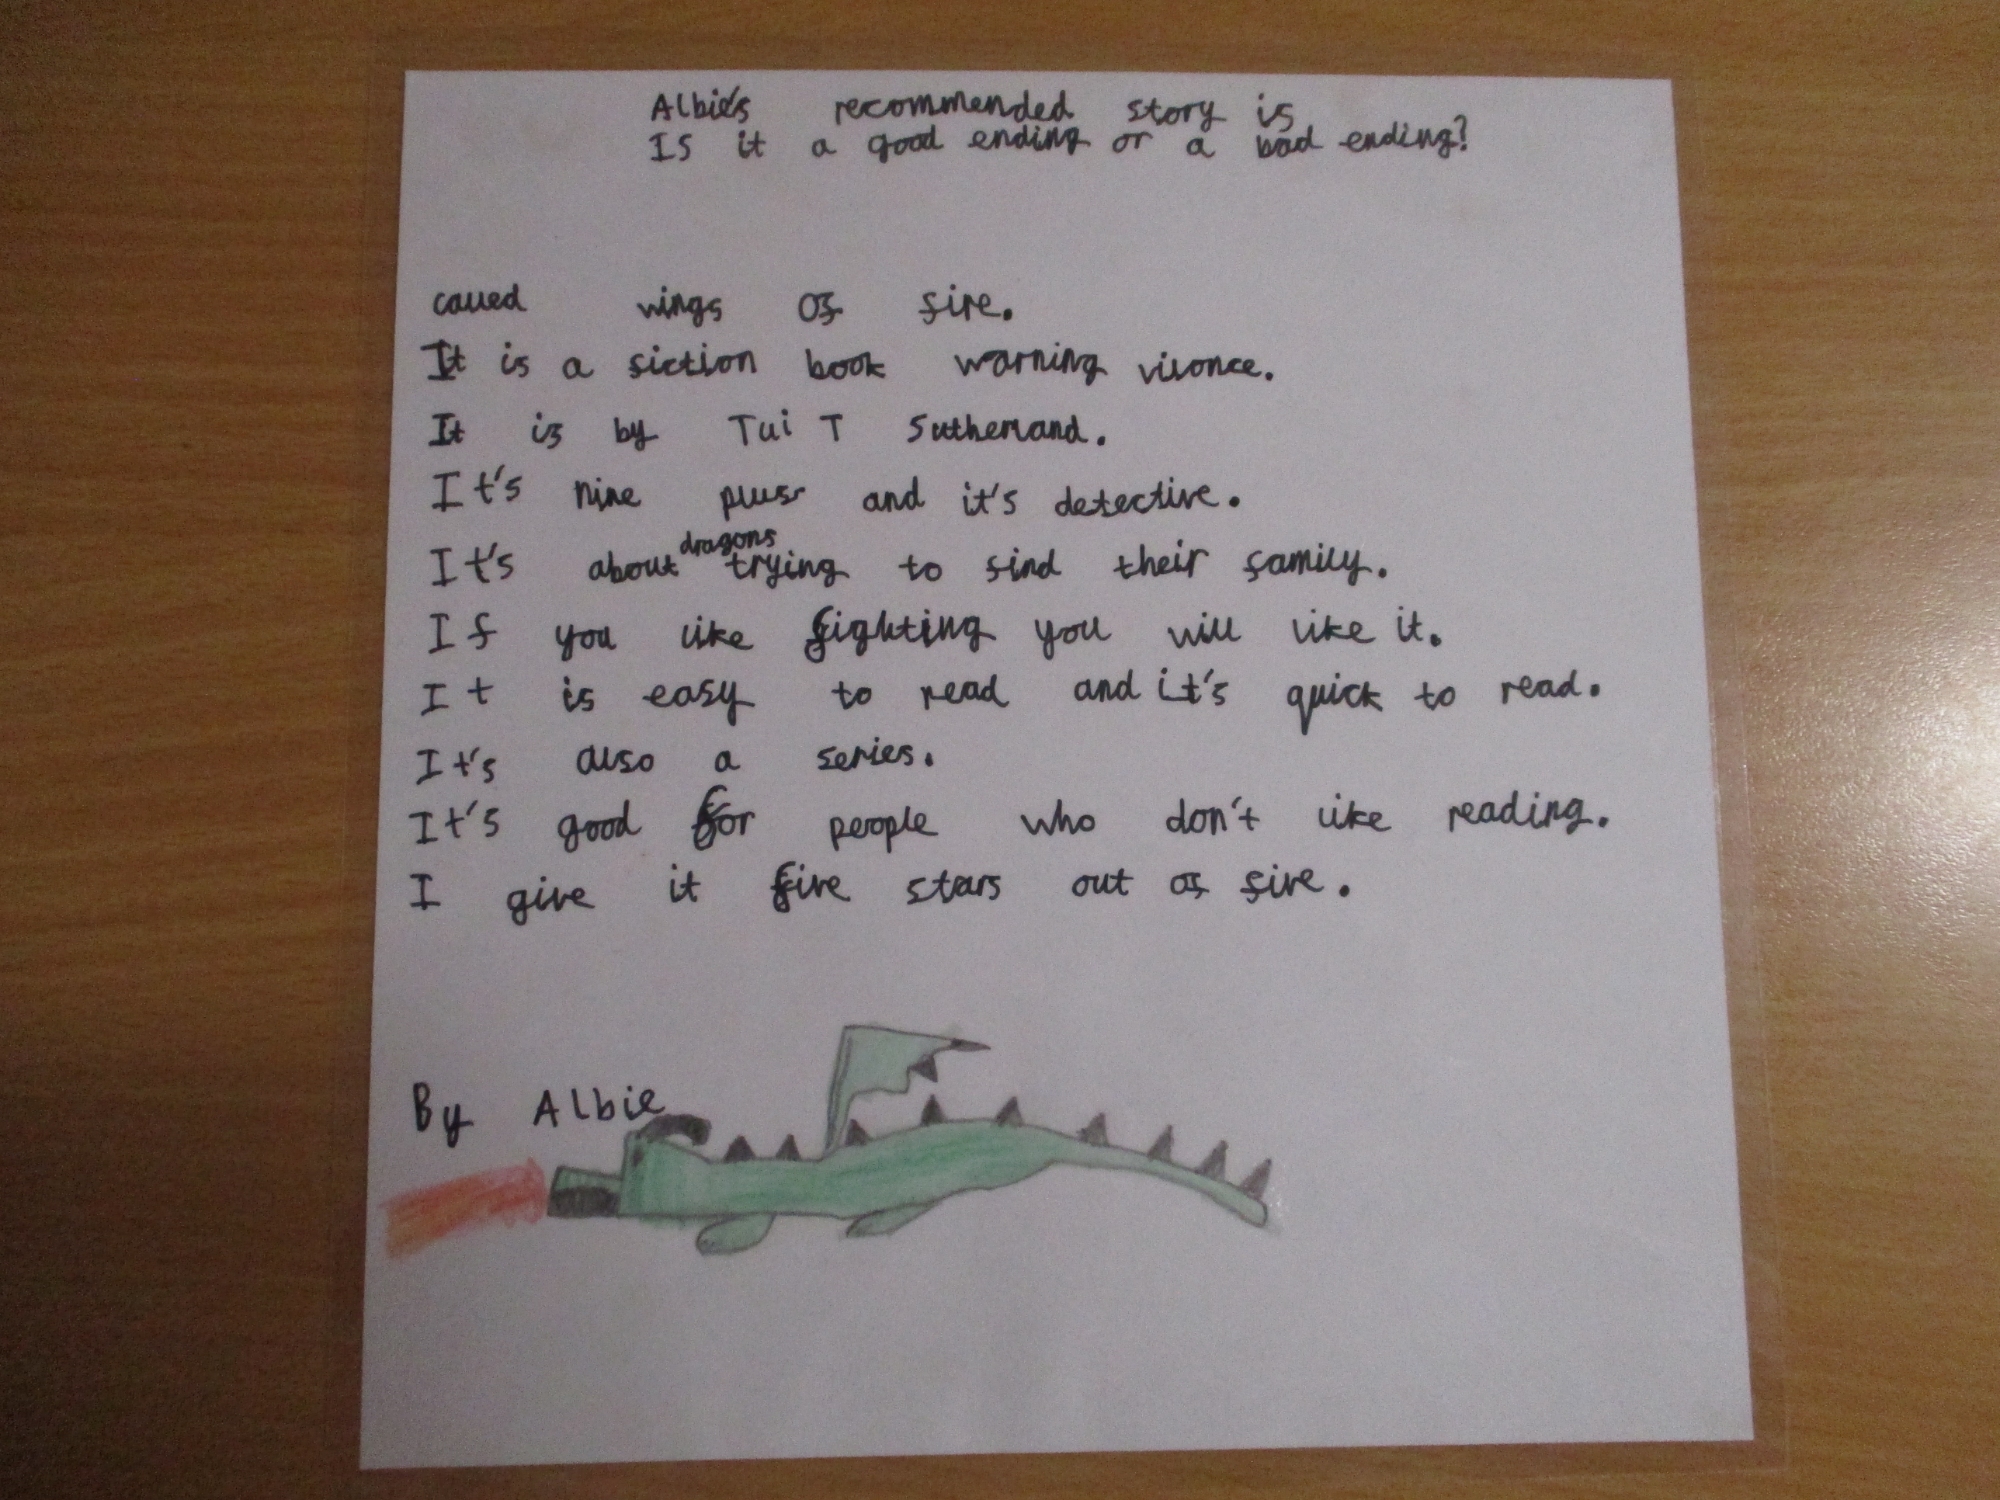 Albie's recommended story is
Is it a good ending or a bad ending?
called wings of fire.
It is a fiction book warning vilonce.
It is by Tui T Sutherland.
It's nine plus and it's detective.
It's about dragons trying to find their family.
If you like fighting you will like it.
It is easy to read and it's quick to read.
It's also a series.
It's good for people who don't like reading.
I give it five stars out of five.
By Albie